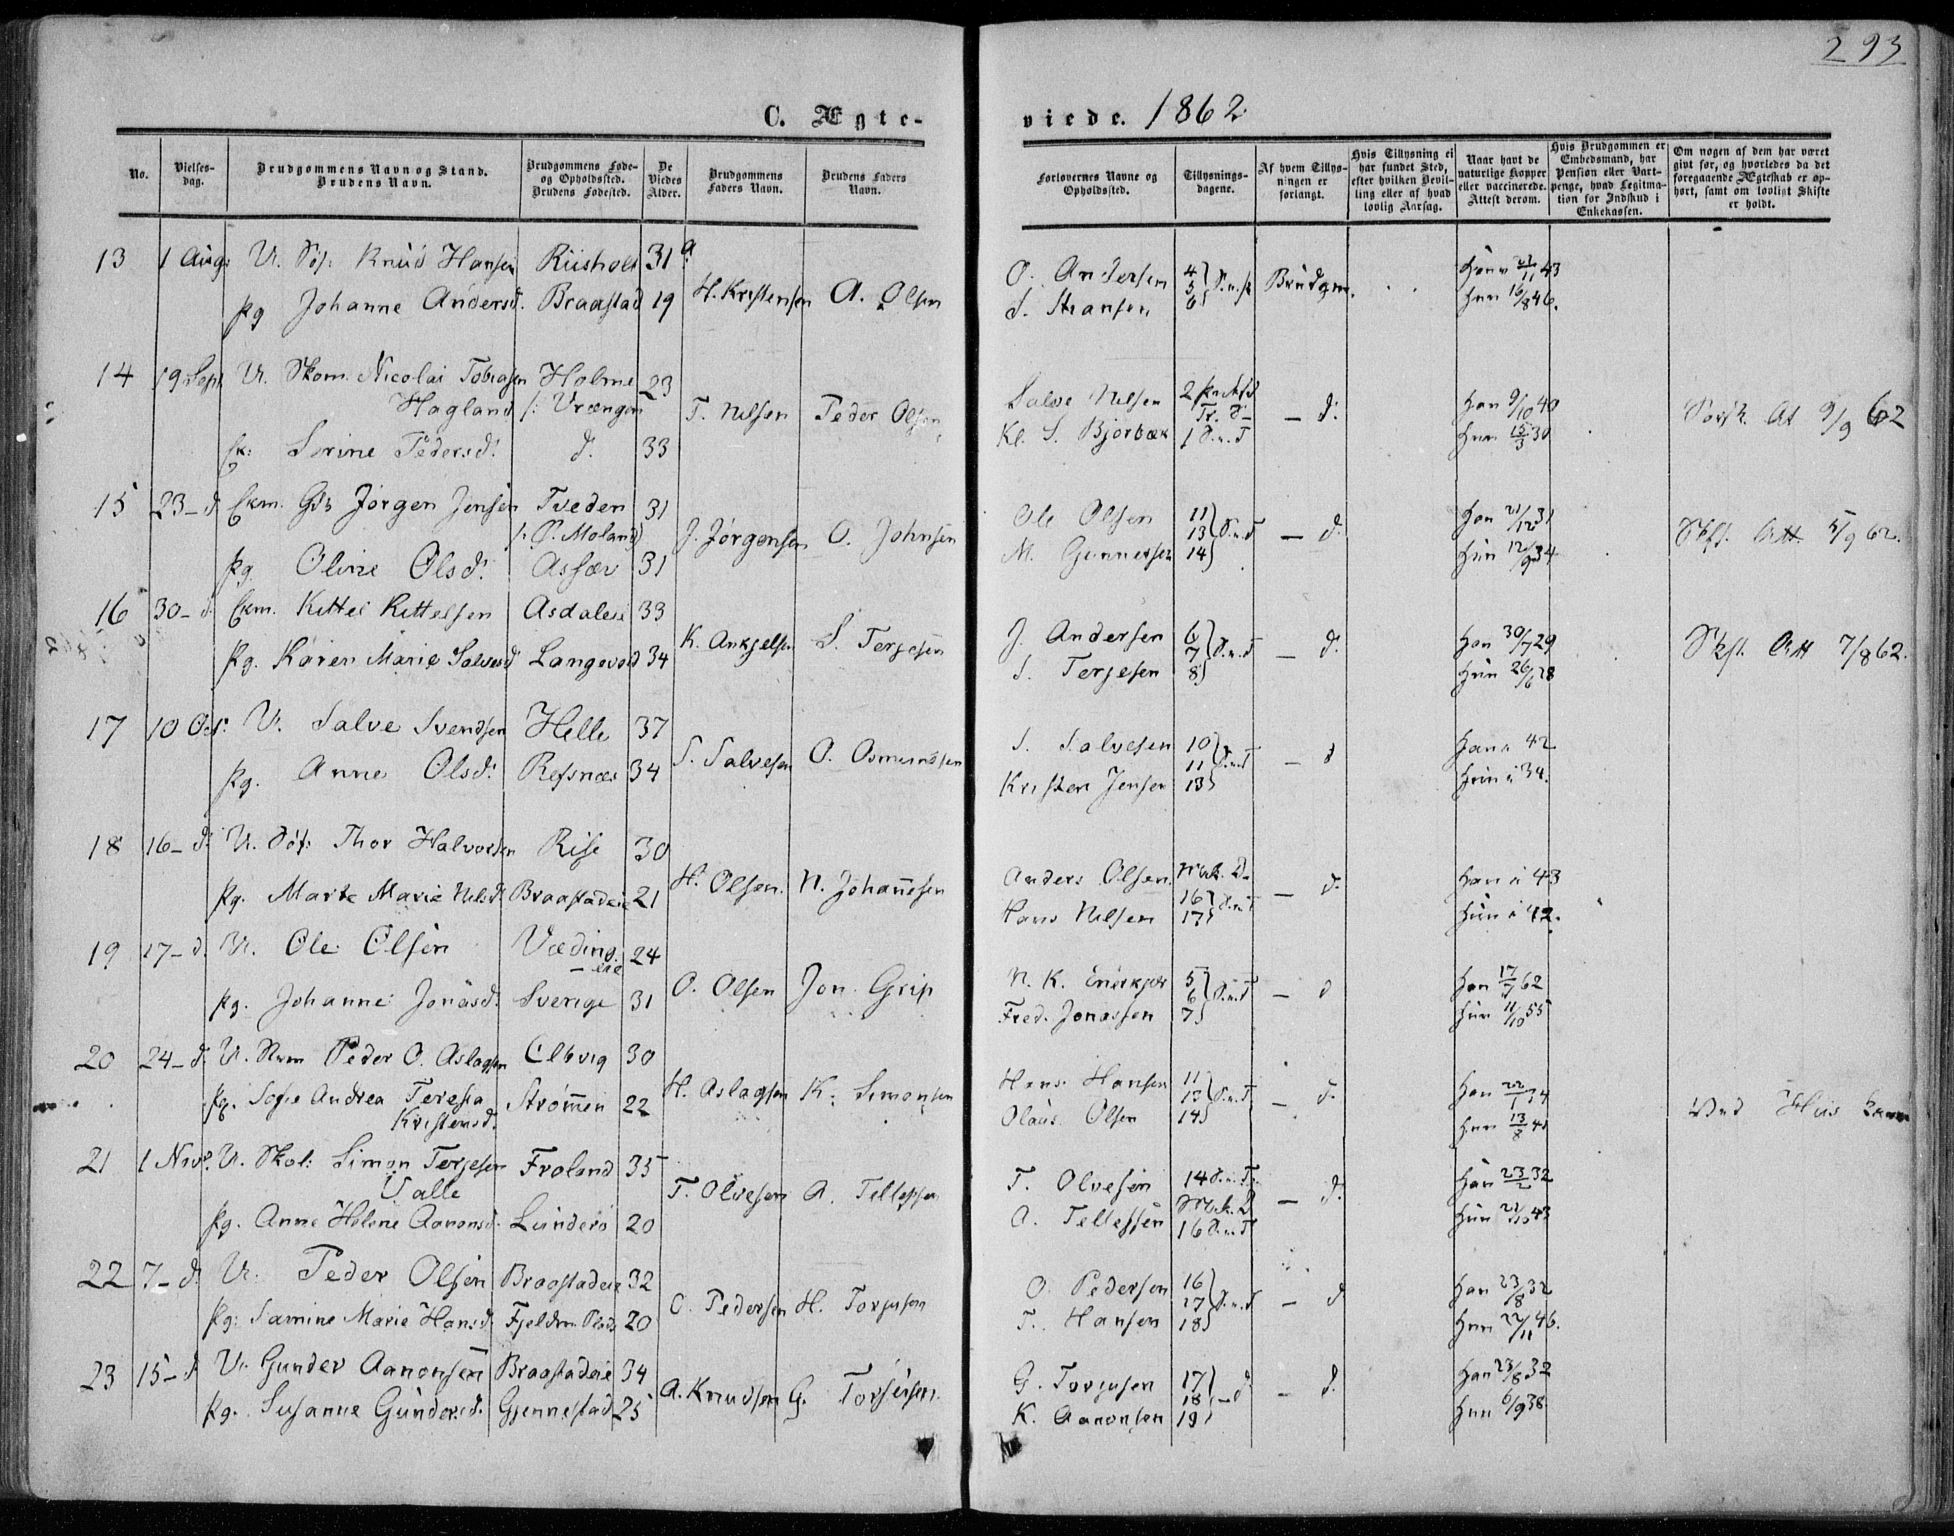 293
C. Ægte-
viede. 1862
No.
Vielses-
dag.
Brudgommens Navn og Stand.
Brudens Navn.
Brudgommens Føde-
og Opholdssted.
Brudens Fødested.
De
Viedes
Alder.
Brudgommens
Faders Navn.
Brudens Faders
Navn.
Forlovernes Navne og
Opholdssted.
Tillysnings-
dagene.
Af hvem Tillys-
ningen er
forlangt.
Hvis Tillysning ei
har fundet Sted,
efter hvilken Bevil-
ling eller af hvad
lovlig Aarsag.
Naar havt de
naturlige Kopper
eller vaccinerede.
Attest derom.
Hvis Brudgommen er
Embedsmand, har
Pension eller Vart-
penge, hvad Legitima-
tion for Indskud i
Enkekassen.
Om nogen af dem har været
givt før, og hvorledes da det
foregaaende Ægteskab er op-
hørt, samt om lovligt Skifte
er holdt.
13 1 Aug: U. Søf: Knud Hansen Riisholt 31 a
H. Kristensen A. Olsen
O. Andersen 4 5 6 Brudgm. Han 11 43
pg Johanne Andersd. Braastad 19
S. Hansen Hun 16/8 46.
14 19 Sept U. Skom. Nicolai Tobiasen Holme 23
Hagland /: Vrængen
T. Nelsen Peder Olsen
Salve Nelsen 2 – d. Han 9/10 40
Kl. S. Bjorbæk 1 S.e.T Hun 15/3 30
9/9 62
Ek: Serine Pedersd. d. 33
15 23 – d. Ekm. Gb Jørgen Jensen Tveden 31
(: Ø. Moland)
J. Jørgensen O. Johnsen
Ole Olsen 11 13 14 S.e.T – d. Han 21/12 31
M. Gunnersen Hun 12/9 34
Skft. Att 5/9 62.
pg. Oline Olsd. Assæv 31
16 30 – d. Ekm. Kittel Kittelsen Asdaleie 33
K. Ankjelsen S. Terjesen
J. Andersen 6 7 8 S.e.T – d. Han 30/7 29
S. Terjesen Hun 26/6 28
Skft. Att 7/8 62.
pg. Karen Marie Salvesd Langevold 34
17 10 Oct. U. Salve Svendsen Helle 37
S. Salvesen O. Osmundsen
S. Salvesen 10 11 13 S.e.T – d Han i 42
Kristen Jensen Hun i 34.
pg. Anne Olsd. Refsnæs 34
18 16 – d. U. Søf: Thor Halvorsen Rise 30
H. Olsen. N. Johannesen
Anders Olsen. – d. Han i 43
Hans Nelsen 16 17 S.e.T Hun i 42.
pg. Marte Marie Nelsd. Braastadeie 21
19 17 – d. U. Ole Olsen Væding 24
– eie
O. Olsen Jon Grip
N. K. 5 6 7 S.e.T – d Han 17/7 62
Fred. Jonassen Hun 11/10 55
pg. Johanne Jonasd. Sverige 31
20 24 – d. U. Peder O. Aslagsen 30
H. Aslagsen K. Simonsen
Hans Hansen 11 13 14 S.e.T – d. Han 22/1 34
Olaus Olsen Hun 13/8 41
pg. Sofie Andrea Teresia Strømmen 22
Kristensd.
21 1 Nov. U. Skol: Simon Terjesen Froland 35
Valle
T. Olvesen A. Tellefsen
T. Olvesen 14 S.e.T. – d. Han 23/2 32
A. Tellefsen 16 S.e.T Hun 21/10 43
pg. Anne Helene Aanonsd. Lunderø 20
22 7 – d. U. Peder Olsen Braastadeie 32
O. Pedersen H. Torjusen
O. Pedersen 16 17 18 S.e.T – d Han 23/8 32
T. Hansen Hun 22/11 46.
pg: Samine Marie Hansd. Fjeldm. Plads 20
23 15 – d U. Gunder Aanonsen Braastadeie 34
A. Knudsen G. Torjusen
G. Torjusen 17 18 19 – d – d. Han 23/8 32
K. Aanonsen Hun 6/9 38
pg. Susanne Gundersd. Gjennestad 25